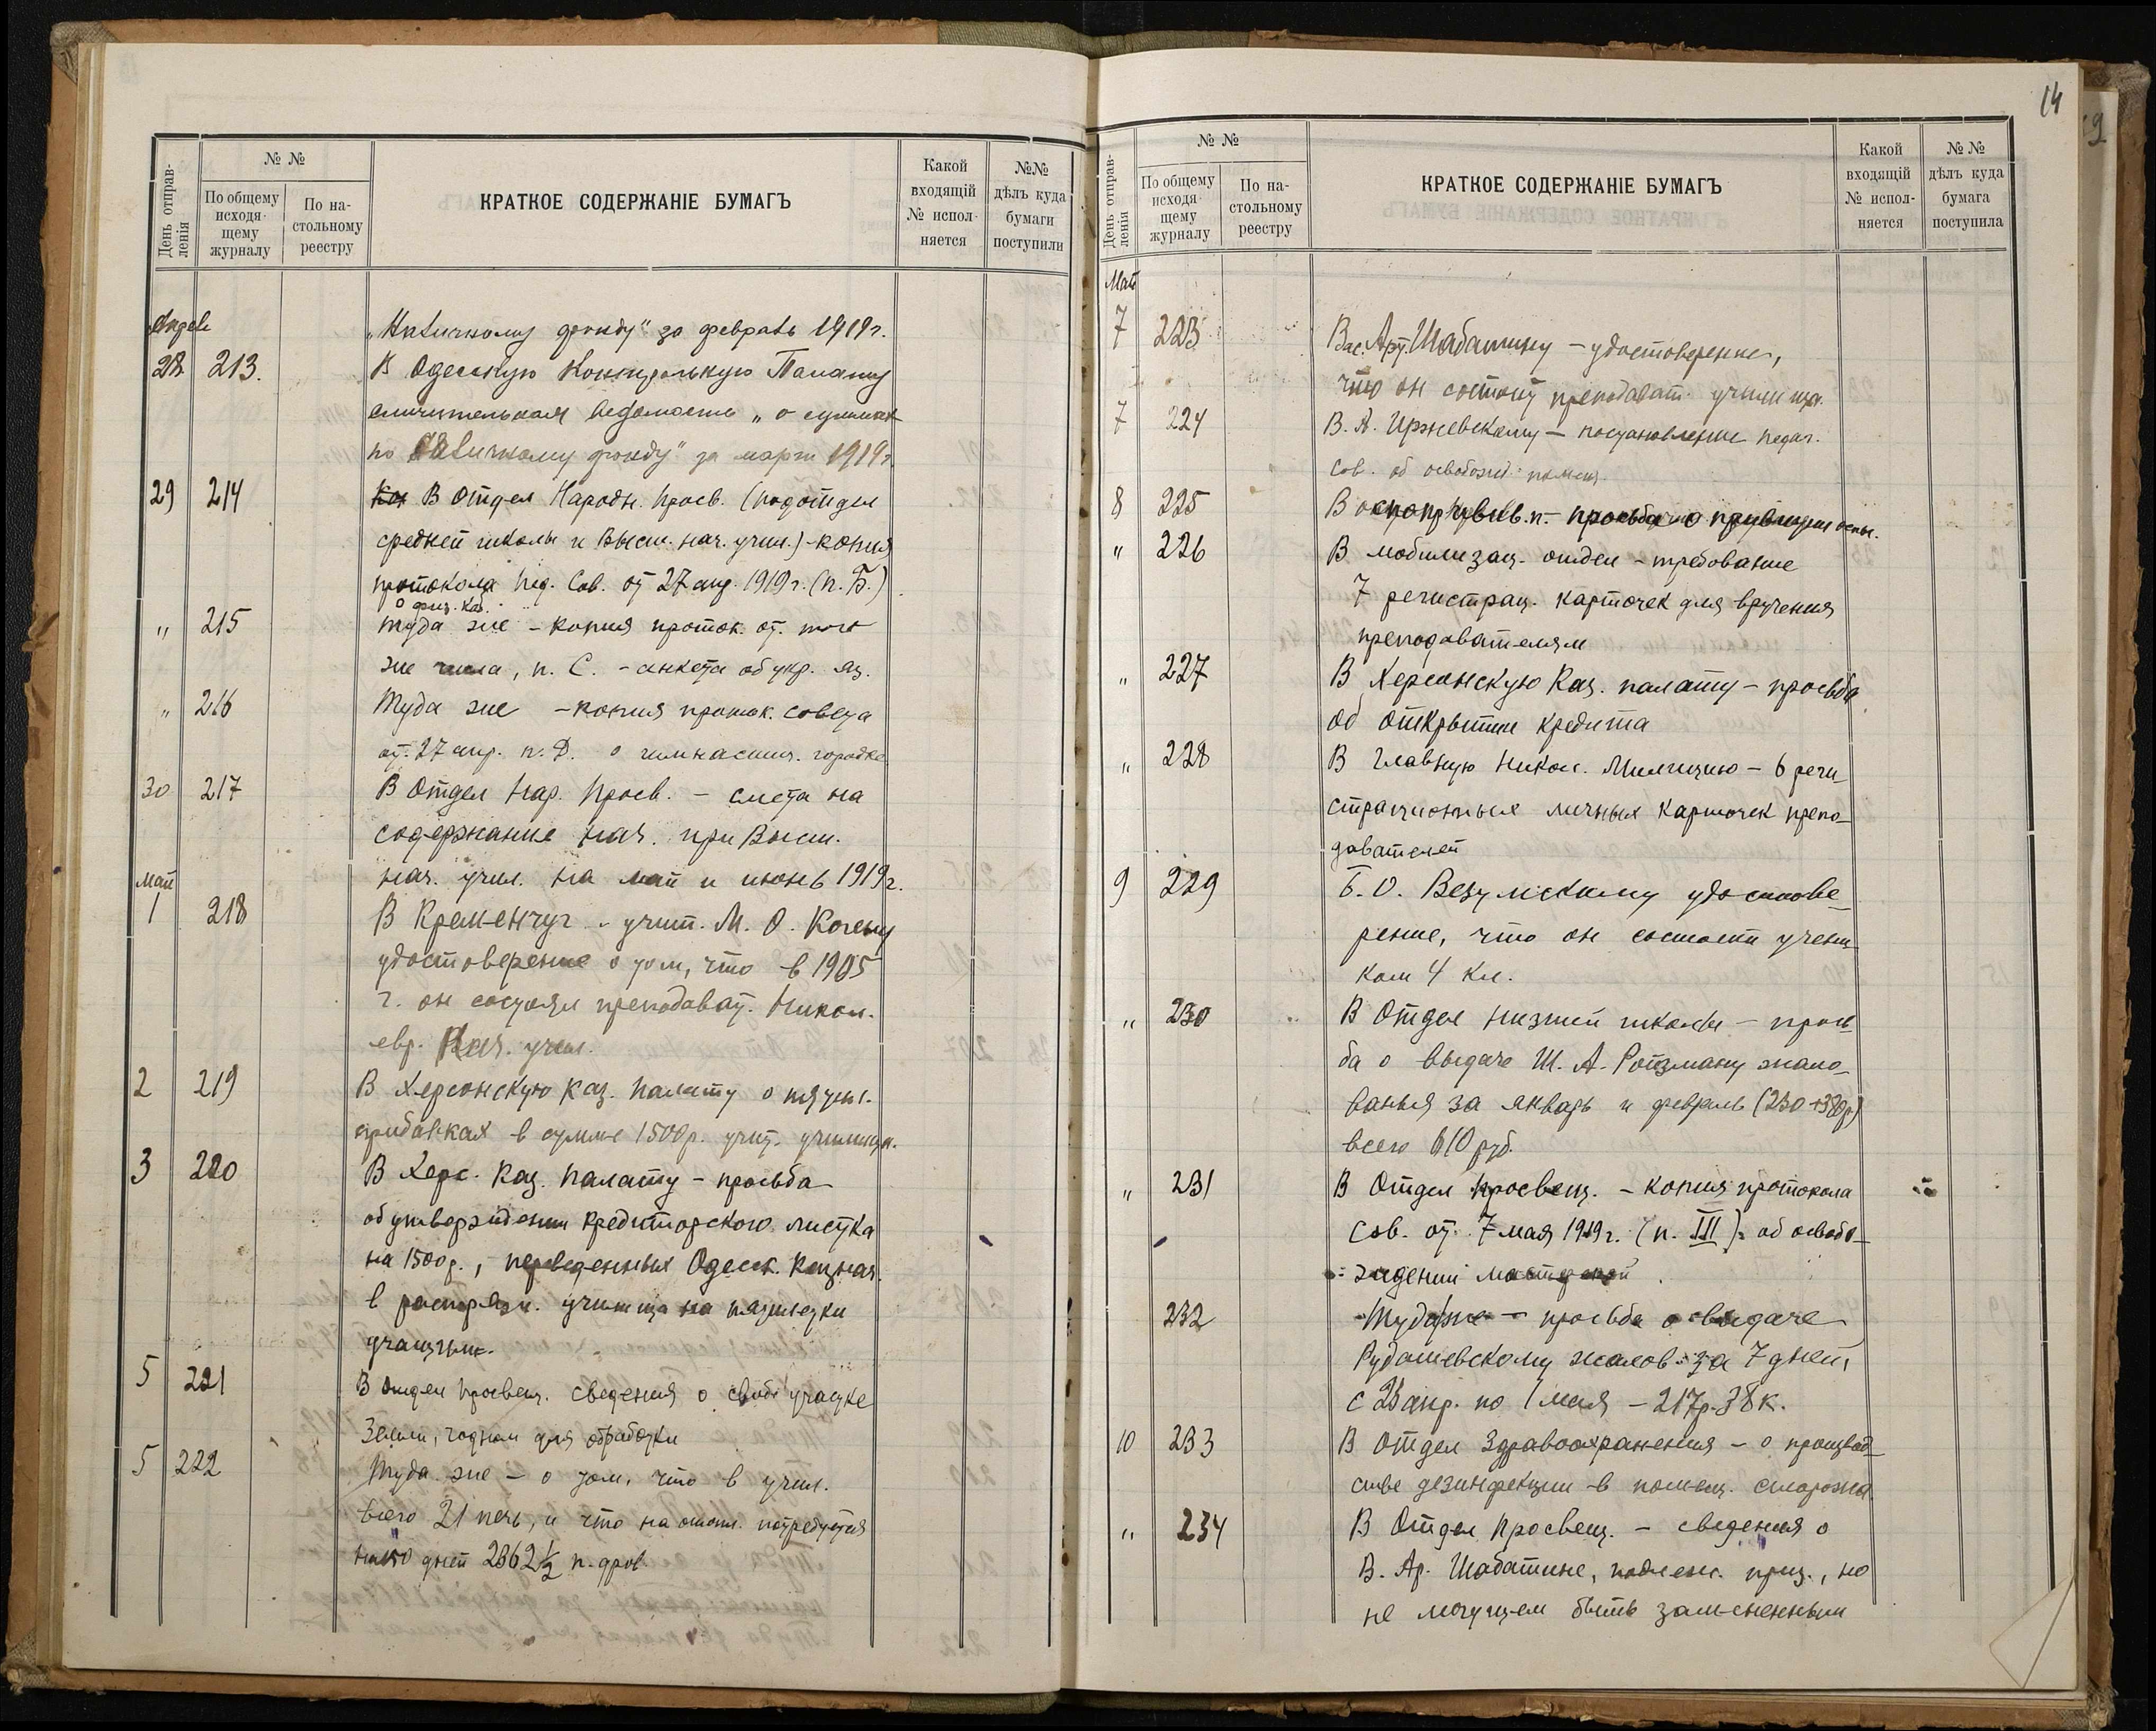 14
День отправ-
ленія
№ №
По общему
исходя-
щему
журналу
По на-
стольному
реестру
КРАТКОЕ СОДЕРЖАНІЕ БУМАГЪ
Какой
входящій
№ испол-
няется
№№
дѣлъ куда
бумаги
поступили
фонду" за февраль 1919 г.
28 213. В Одесскую Контрольную Палату
сличительная ведомость „о суммах
по фонду" за март 1919 г.
29 214 В Отдел Народн. Просв. (подотдел
средней школы и Высш. нач. учил.) - копия
протокола Пед. Сов. от 27 апр. 1919 г. (п. Б.)
о физ. каб.
" 215 Туда же - копия проток. от того
же числа, п. С. - анкета об укр. яз.
" 216 Туда же - копия проток. совета
от 27 апр. п. Д. о гимнастич. городке
30 217 В Отдел Нар. Просв. - смета на
содержание нач. при Высш.
нач. учил. на май и июнь 1919 г.
май
1 218 В Кременчуг - учит. М. О. Когену
удостоверение о том, что в 1905
г. он состоял преподават. Никол.
евр. Нач. учил.
2 219 В Херсонскую Каз. Палату о пятил.
прибавках в сумме 1500 р. учит. училищ.
3 220 В Херс. Каз. Палату - просьба
об утверждении кредиторского листка
на 1500 р., переведенных Одесск. Казнач.
в распоряж. училища на пятилетки
учащим.
5 221 В Отдел Просвещ. сведения о своб. участке
земли, годном для обработки
5 222 Туда же - о том, что в учил.
всего 21 печь, и что на отопл. потребуется
дней 2862 1/2 п. дров
День отправ-
ленія
№ №
По общему
исходя-
щему
журналу
По на-
стольному
реестру
КРАТКОЕ СОДЕРЖАНІЕ БУМАГЪ
Какой
входящій
№ испол-
няется
№ №
дѣлъ куда
бумага
поступила
Май
7 223 Вас. Арт. Шабатину - удостоверение,
что он состоит преподават. училища.
7 224 В. А. Иржевскому - постановление педаг.
сов. об освобожд.
8 225 В оспопрививв. п. - просьба о прививции оспы.
" 226 В мобилизац. отдел - требование
7 регистрац. карточек для вручения
преподавателям
" 227 В Херсонскую Каз. палату - просьба
об открытии кредита
" 228 В Главную Никол. Милицию - 6 реги-
страционных личных карточек препо-
давателей
9 229 удостове-
рение, что он состоит учени-
ком 4 кл.
" 230 В Отдел низшей школы - прось-
ба о выдаче Ш. А. Ройзману жало-
ванья за январь и февраль (230 + 380 р.)
всего 610 руб.
" 231 В Отдел просвещ. - копия протокола
Сов. от 7 мая 1919 г. (п. III) - об освобо-
ждении мастерской
232 Туда же - просьба о выдаче
Рудашевскому жалов. за 7 дней,
с 23 апр. по 1 мая - 217 р. 38 к.
10 233 В Отдел Здравоохранения - о производ-
стве дезинфекции в помещ. сторожа
" 234 В Отдел Просвещ. - сведения о
В. Ар. Шабатине, подлеж. приз., но
не могущем быть замененным